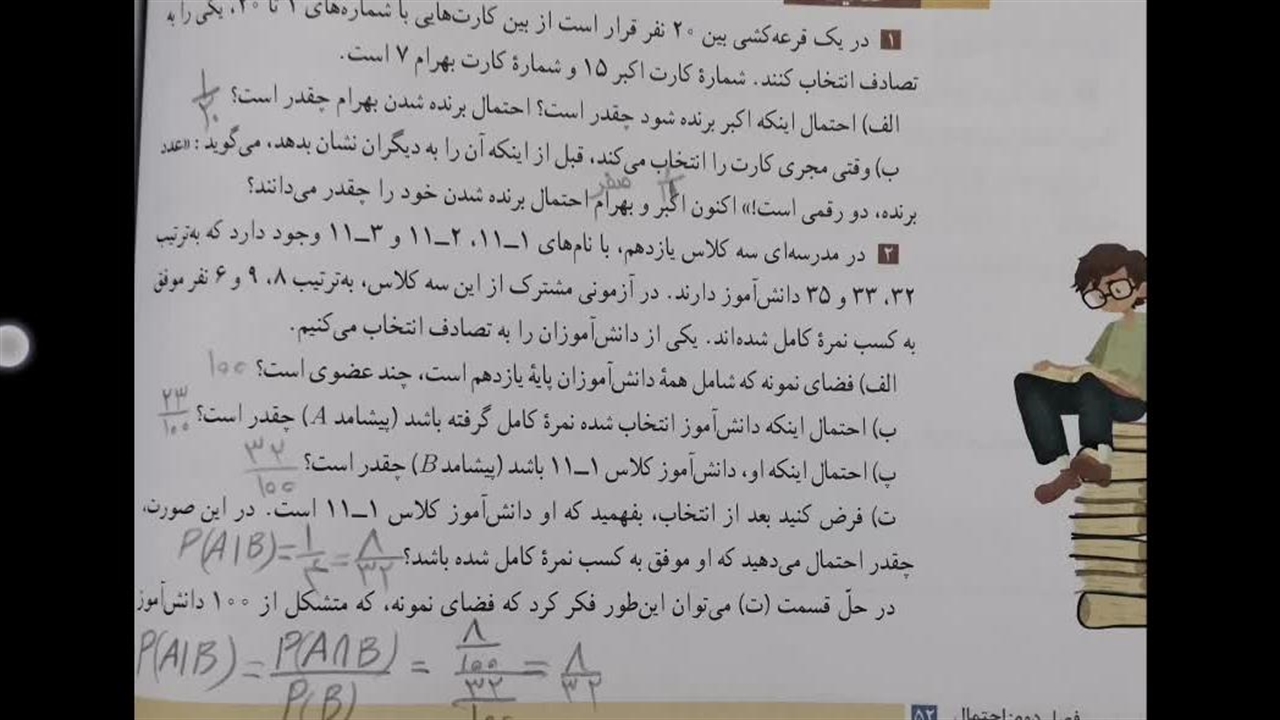 ۱ در یک قرعه‌کشی بین ۲۰ نفر قرار است از بین کارت‌هایی با شماره‌های ۱ تا ۲۰، یکی را به
تصادف انتخاب کنند. شمارهٔ کارت اکبر ۱۵ و شمارهٔ کارت بهرام ۷ است.
الف) احتمال اینکه اکبر برنده شود چقدر است؟ احتمال برنده شدن بهرام چقدر است؟ ۱/۲۰
ب) وقتی مجری کارت را انتخاب می‌کند، قبل از اینکه آن را به دیگران نشان بدهد، می‌گوید: «عدد
صفر
برنده، دو رقمی است!» اکنون اکبر و بهرام احتمال برنده شدن خود را چقدر می‌دانند؟
۲ در مدرسه‌ای سه کلاس یازدهم، با نام‌های ۱ــ۱۱، ۲ــ۱۱ و ۳ــ۱۱ وجود دارد که به‌ترتیب
۳۲، ۳۳ و ۳۵ دانش‌آموز دارند. در آزمونی مشترک از این سه کلاس، به‌ترتیب ۸، ۹ و ۶ نفر موفق
به کسب نمرهٔ کامل شده‌اند. یکی از دانش‌آموزان را به تصادف انتخاب می‌کنیم.
الف) فضای نمونه که شامل همهٔ دانش‌آموزان پایهٔ یازدهم است، چند عضوی است؟ ۱۰۰
ب) احتمال اینکه دانش‌آموز انتخاب شده نمرهٔ کامل گرفته باشد (پیشامد A) چقدر است؟ ۲۳/۱۰۰
پ) احتمال اینکه او، دانش‌آموز کلاس ۱ــ۱۱ باشد (پیشامد B) چقدر است؟ ۳۲/۱۰۰
ت) فرض کنید بعد از انتخاب، بفهمید که او دانش‌آموز کلاس ۱ــ۱۱ است. در این صورت،
چقدر احتمال می‌دهید که او موفق به کسب نمرهٔ کامل شده باشد؟ P(A|B)=۱/۴=۸/۳۲
در حلّ قسمت (ت) می‌توان این‌طور فکر کرد که فضای نمونه، که متشکل از ۱۰۰ دانش‌آموز
P(A|B) = P(A∩B)/P(B) = (۸/۱۰۰)/(۳۲/۱۰۰) = ۸/۳۲
فصل دوم: احتمال ۵۲